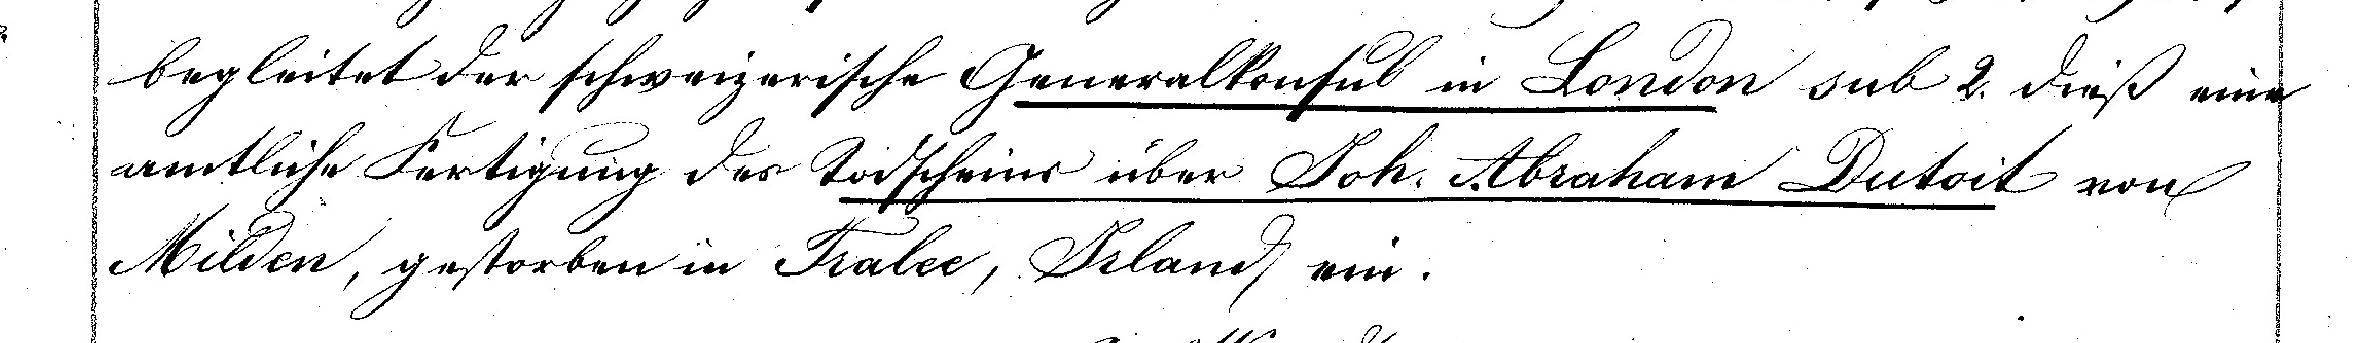 begleitet der schweizerische Generalkonsul in London sub 2. dieß eine
amtliche Fertigung des Todscheins über Joh. Abraham Dutoit von
Milden, gestorben in Tralee, Irland, ein.